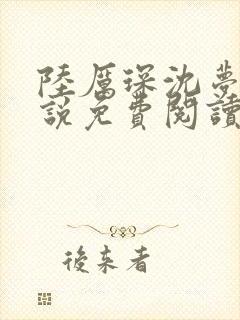 陸厲琛沈夢
說免費閱讀
後來者